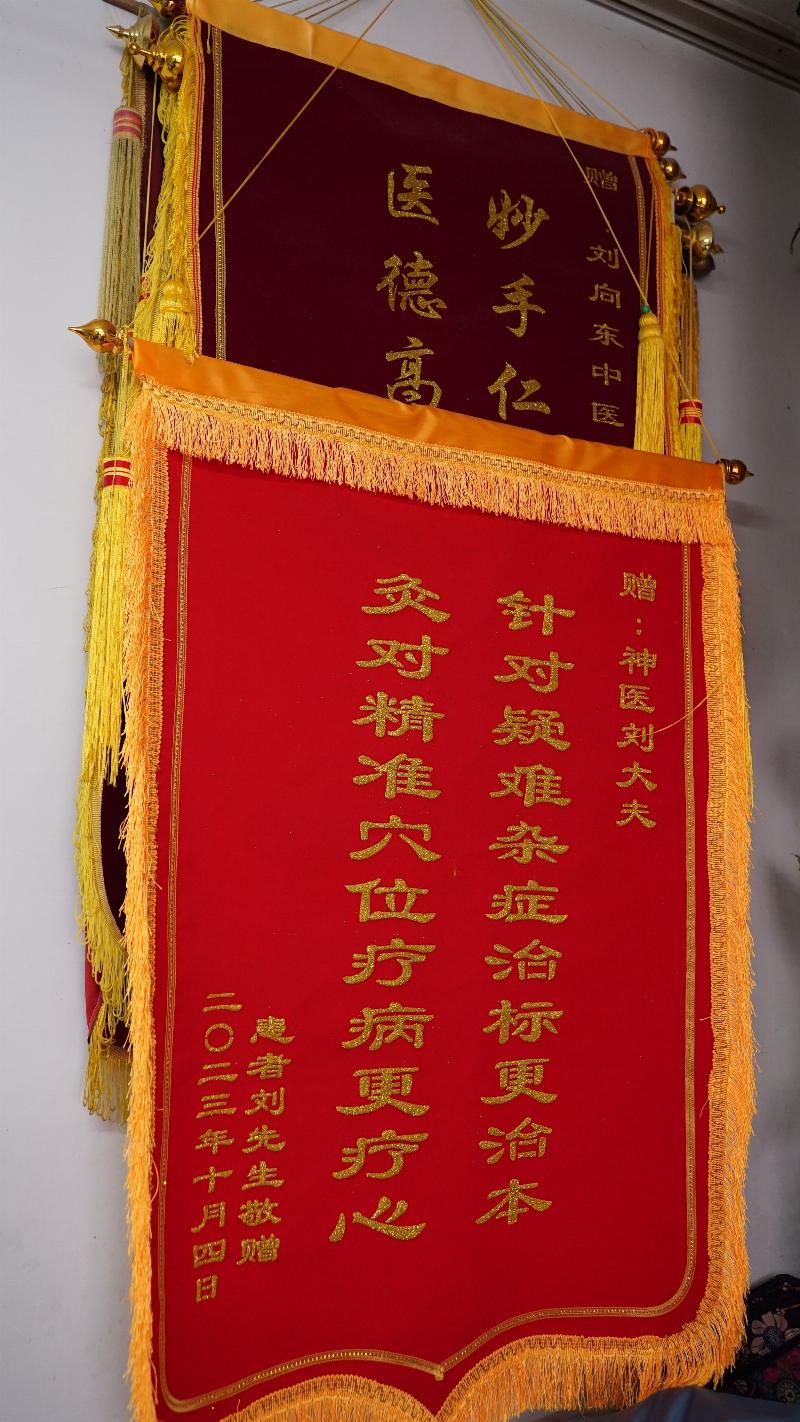 赠:刘向东中医
妙手仁
医德高
赠:神医刘大夫
针对疑难杂症治标更治本
灸对精准穴位疗病更疗心
患者刘先生敬赠
二〇二三年十月四日